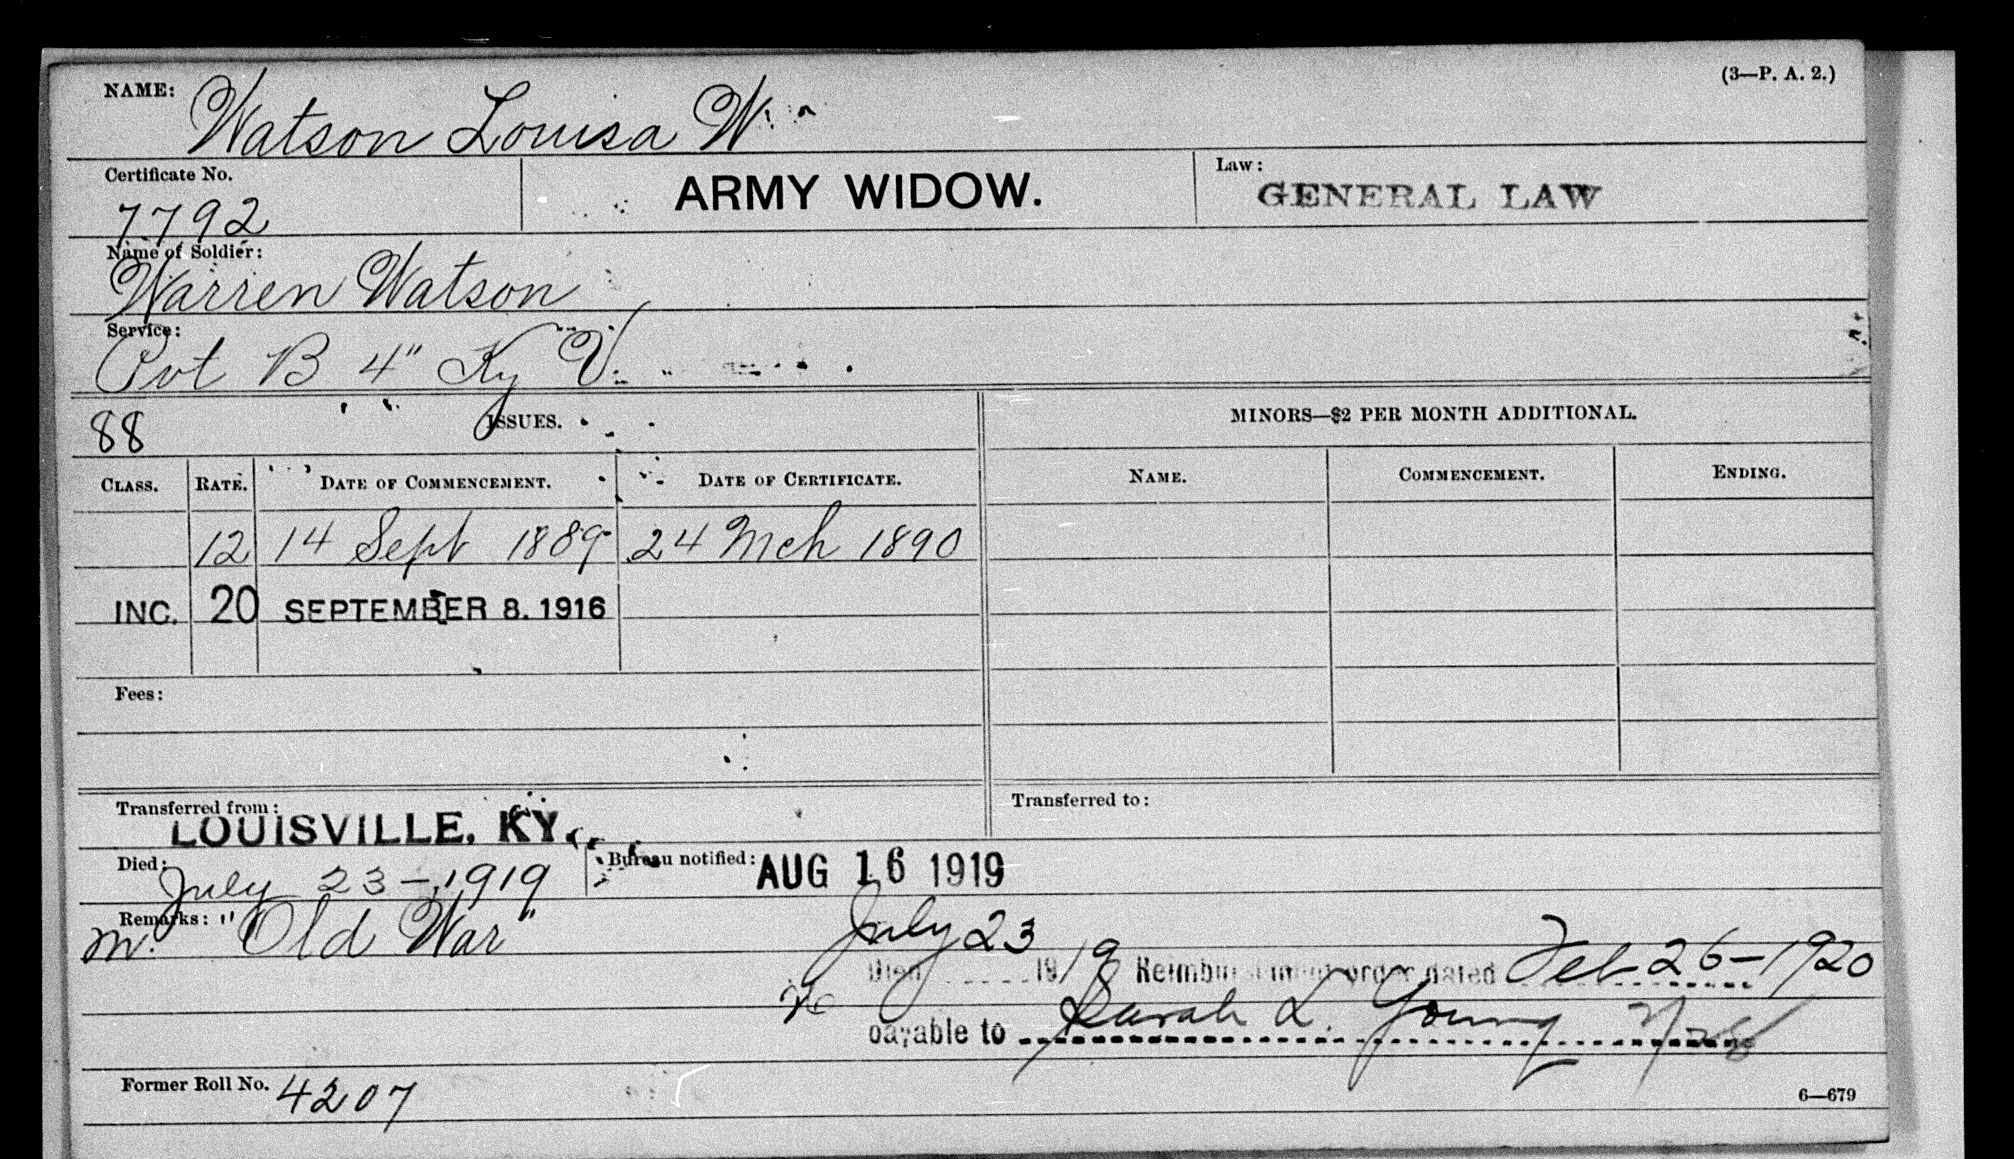 (3—P. A. 2.)
NAME: Watson Louisa W.
Certificate No. 7792
ARMY WIDOW.
Law: GENERAL LAW
Name of Soldier: Warren Watson
Service: Pvt B 4" Ky V.
88 ISSUES.
MINORS—$2 PER MONTH ADDITIONAL.
CLASS. RATE. DATE OF COMMENCEMENT. DATE OF CERTIFICATE. NAME. COMMENCEMENT. ENDING.
12 14 Sept 1889 24 Mch 1890
INC. 20 SEPTEMBER 8. 1916
Fees:
Transferred from: LOUISVILLE, KY.
Transferred to:
Died: July 23-1919
Bureau notified: AUG 16 1919
Remarks: "Old War"
m.
July 23
Died 1919 Reimbursement order dated Feb 26-1920
payable to Sarah L. Young
Former Roll No. 4207
6—679